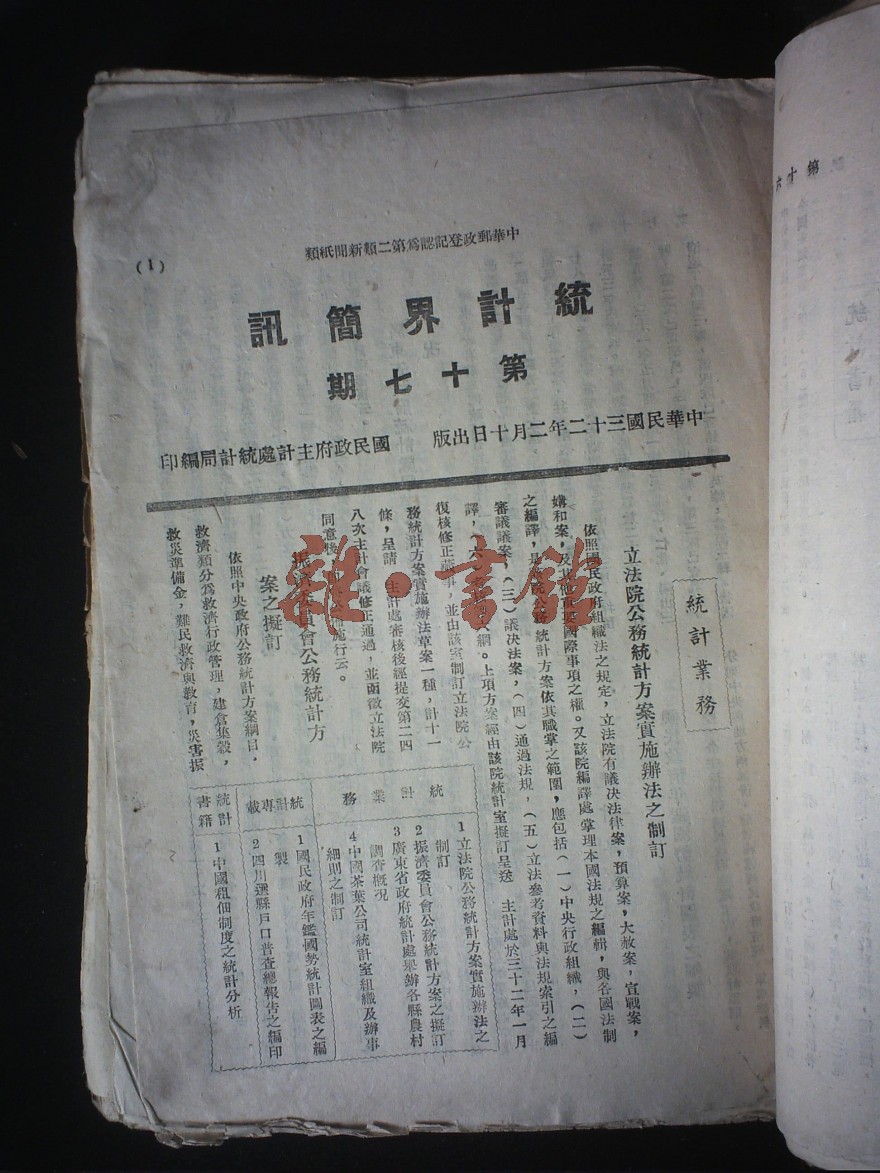 中華郵政登記認爲第二類新聞紙類
(1)
統計界簡訊
第十七期
中華民國三十二年二月十日出版　國民政府主計處統計局編印
統計業務
立法院公務統計方案實施辦法之制訂
依照國民政府組織法之規定，立法院有議決法律案，預算案，大赦案，宣戰案，
媾和案，及其他重要國際事項之權。又該院編譯處掌理本國法規之編輯，與各國法制
之編譯，是該院公務統計方案依其職掌之範圍，應包括（一）中央行政組織，（二）
審議議案，（三）議決法案，（四）通過法規，（五）立法參考資料與法規索引之編
譯，（六）綱。上項方案經由該院統計室擬訂呈送　主計處於三十二年一月
復核修正竣事，並由該室制訂立法院公
務統計方案實施辦法草案一種，計十一
條，呈請　主計處審核後經提交第二四
八次主計會議修正通過，並函徵立法院
同意後，施行云。
振濟委員會公務統計方
案之擬訂
依照中央政府公務統計方案綱目，
救濟類分爲救濟行政管理，建倉集穀，
救災準備金，難民救濟與教育，災害振
統計業務
1立法院公務統計方案實施辦法之
制訂
2振濟委員會公務統計方案之擬訂
3廣東省政府統計處舉辦各縣農村
調查概況
4中國茶葉公司統計室組織及辦事
細則之制訂
統計專載
1國民政府年鑑國勢統計圖表之編
製
2四川選縣戶口普查總報告之編印
統計書籍
1中國租佃制度之統計分析
雜·書館
第十六